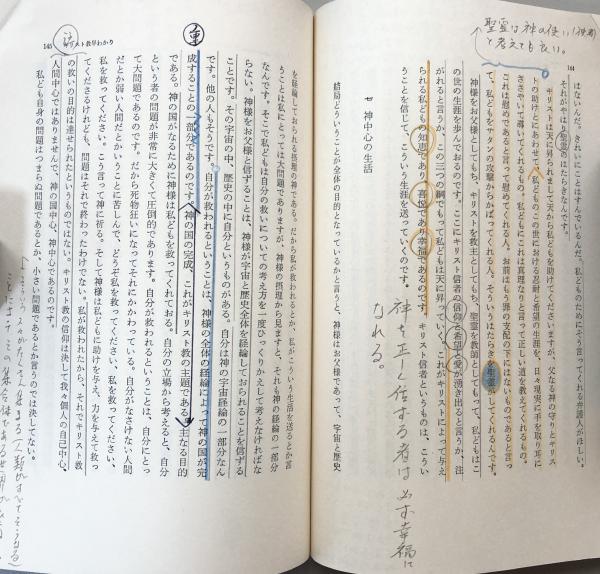 144
はないんだ。きれいにことはすんでいるんだ。私どものためにそう言ってくれる弁護人がほしい。
それがやはり聖霊のはたらきなんです。
キリストは天に昇られまして天から私どもを助けてくださいますが、父なる神の守りとキリス
トの助けとにあわせて、私どものこの世における忍耐と希望の生涯を、日々現実に手を取り耳に
ささやいて導いてくれるもの。私どもにこれは真理なりと言って正しい道を教えてくれるもの。
これは慰めであると言って慰めてくれる人。お前はもう罪の支配の下にはないものであると言っ
て、私どもをサタンの攻撃からかばってくれる人。そういうはたらきを聖霊がしてくれるんです。
神様をお父様としてもち、キリストを救主としてもち、聖霊を教師としてもって、私どもはこ
の世の生涯を歩んでおるのです。ここにキリスト信者の信仰と希望と愛が湧き出ると言うか、注
がれると言うか、この三つの綱でもって私どもは天に昇っていく。これがキリストによって与え
られる私どもの知恵であり、喜悦であり幸福であるのです。キリスト信者というものは、こうい
うことを信じて、こういう生涯を送っていくのです。
七 神中心の生活
結局どういうことが全体の目的となっているかと言うと、神様はお父様であって、宇宙と歴史
聖霊は神の使い
と考えても良い。
神を正しく信ずる者は必ず幸福に
なれる。
145 キリスト教早わかり
を経綸しておられる摂理の神である。だから私が救われるとか、私がこういう生活を送るとか言
うことは私にとっては大問題でありますが、神様の摂理から見ますと、それも神の経綸の一部分
なんです。そこで私どもは自分の救いについての考え方を一度ひっくりかえして考えなければな
らない。神様をお父様と信ずることは、神様が宇宙と歴史全体を経綸しておられることを信ずる
ことです。その宇宙の中、歴史の中に自分というものがある。自分は神の宇宙経綸の一部分なん
です。他の人もそうです。自分が救われるということは、神様の全体の経綸によって神の国が完
成することの一部分であるのです。神の国の完成、これがキリスト教の主題である。主なる目的
である。神の国がなるために神様は私どもを救ってくれておる。自分の立場から考えると、自分
という者の問題が非常に大きくて圧倒的であります。自分が救われるということは、自分にとっ
て大問題であるのです。だから死物狂いになってそれにかかわっている。自分がなさけない人間
だとか弱い人間だとかいうことに苦しんで、どうぞ私を救ってください、私を救ってください、
私を救ってください。こう言って神に祈る。そして神様は私どもに助けを与え、力を与えて救っ
てくださるけれども、問題はそれで終わったわけでない。私が救われたから、それでキリスト教
の救いの目的は達せられたというものではない。キリスト教の信仰は決して我々個人の自己中心、
人間中心ではありませんで、神の国中心、神中心であるのです。
私ども自身の問題はつまらぬ問題であるとか、小さい問題であるとか言うのでは決してない。